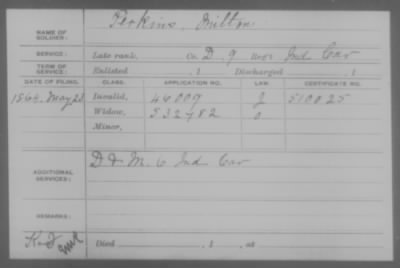 NAME OF SOLDIER: Perkins, Milton
SERVICE: Late rank, Co. D, 9 Reg't Ind Cav
TERM OF SERVICE: Enlisted , 1 Discharged , 1
DATE OF FILING. CLASS. APPLICATION NO. LAW. CERTIFICATE NO.
1864, May 21 Invalid, 44009 510025
Widow, 532782
Minor,
ADDITIONAL SERVICES: D & M. 6 Ind Cav
REMARKS:
Died , 1 , at